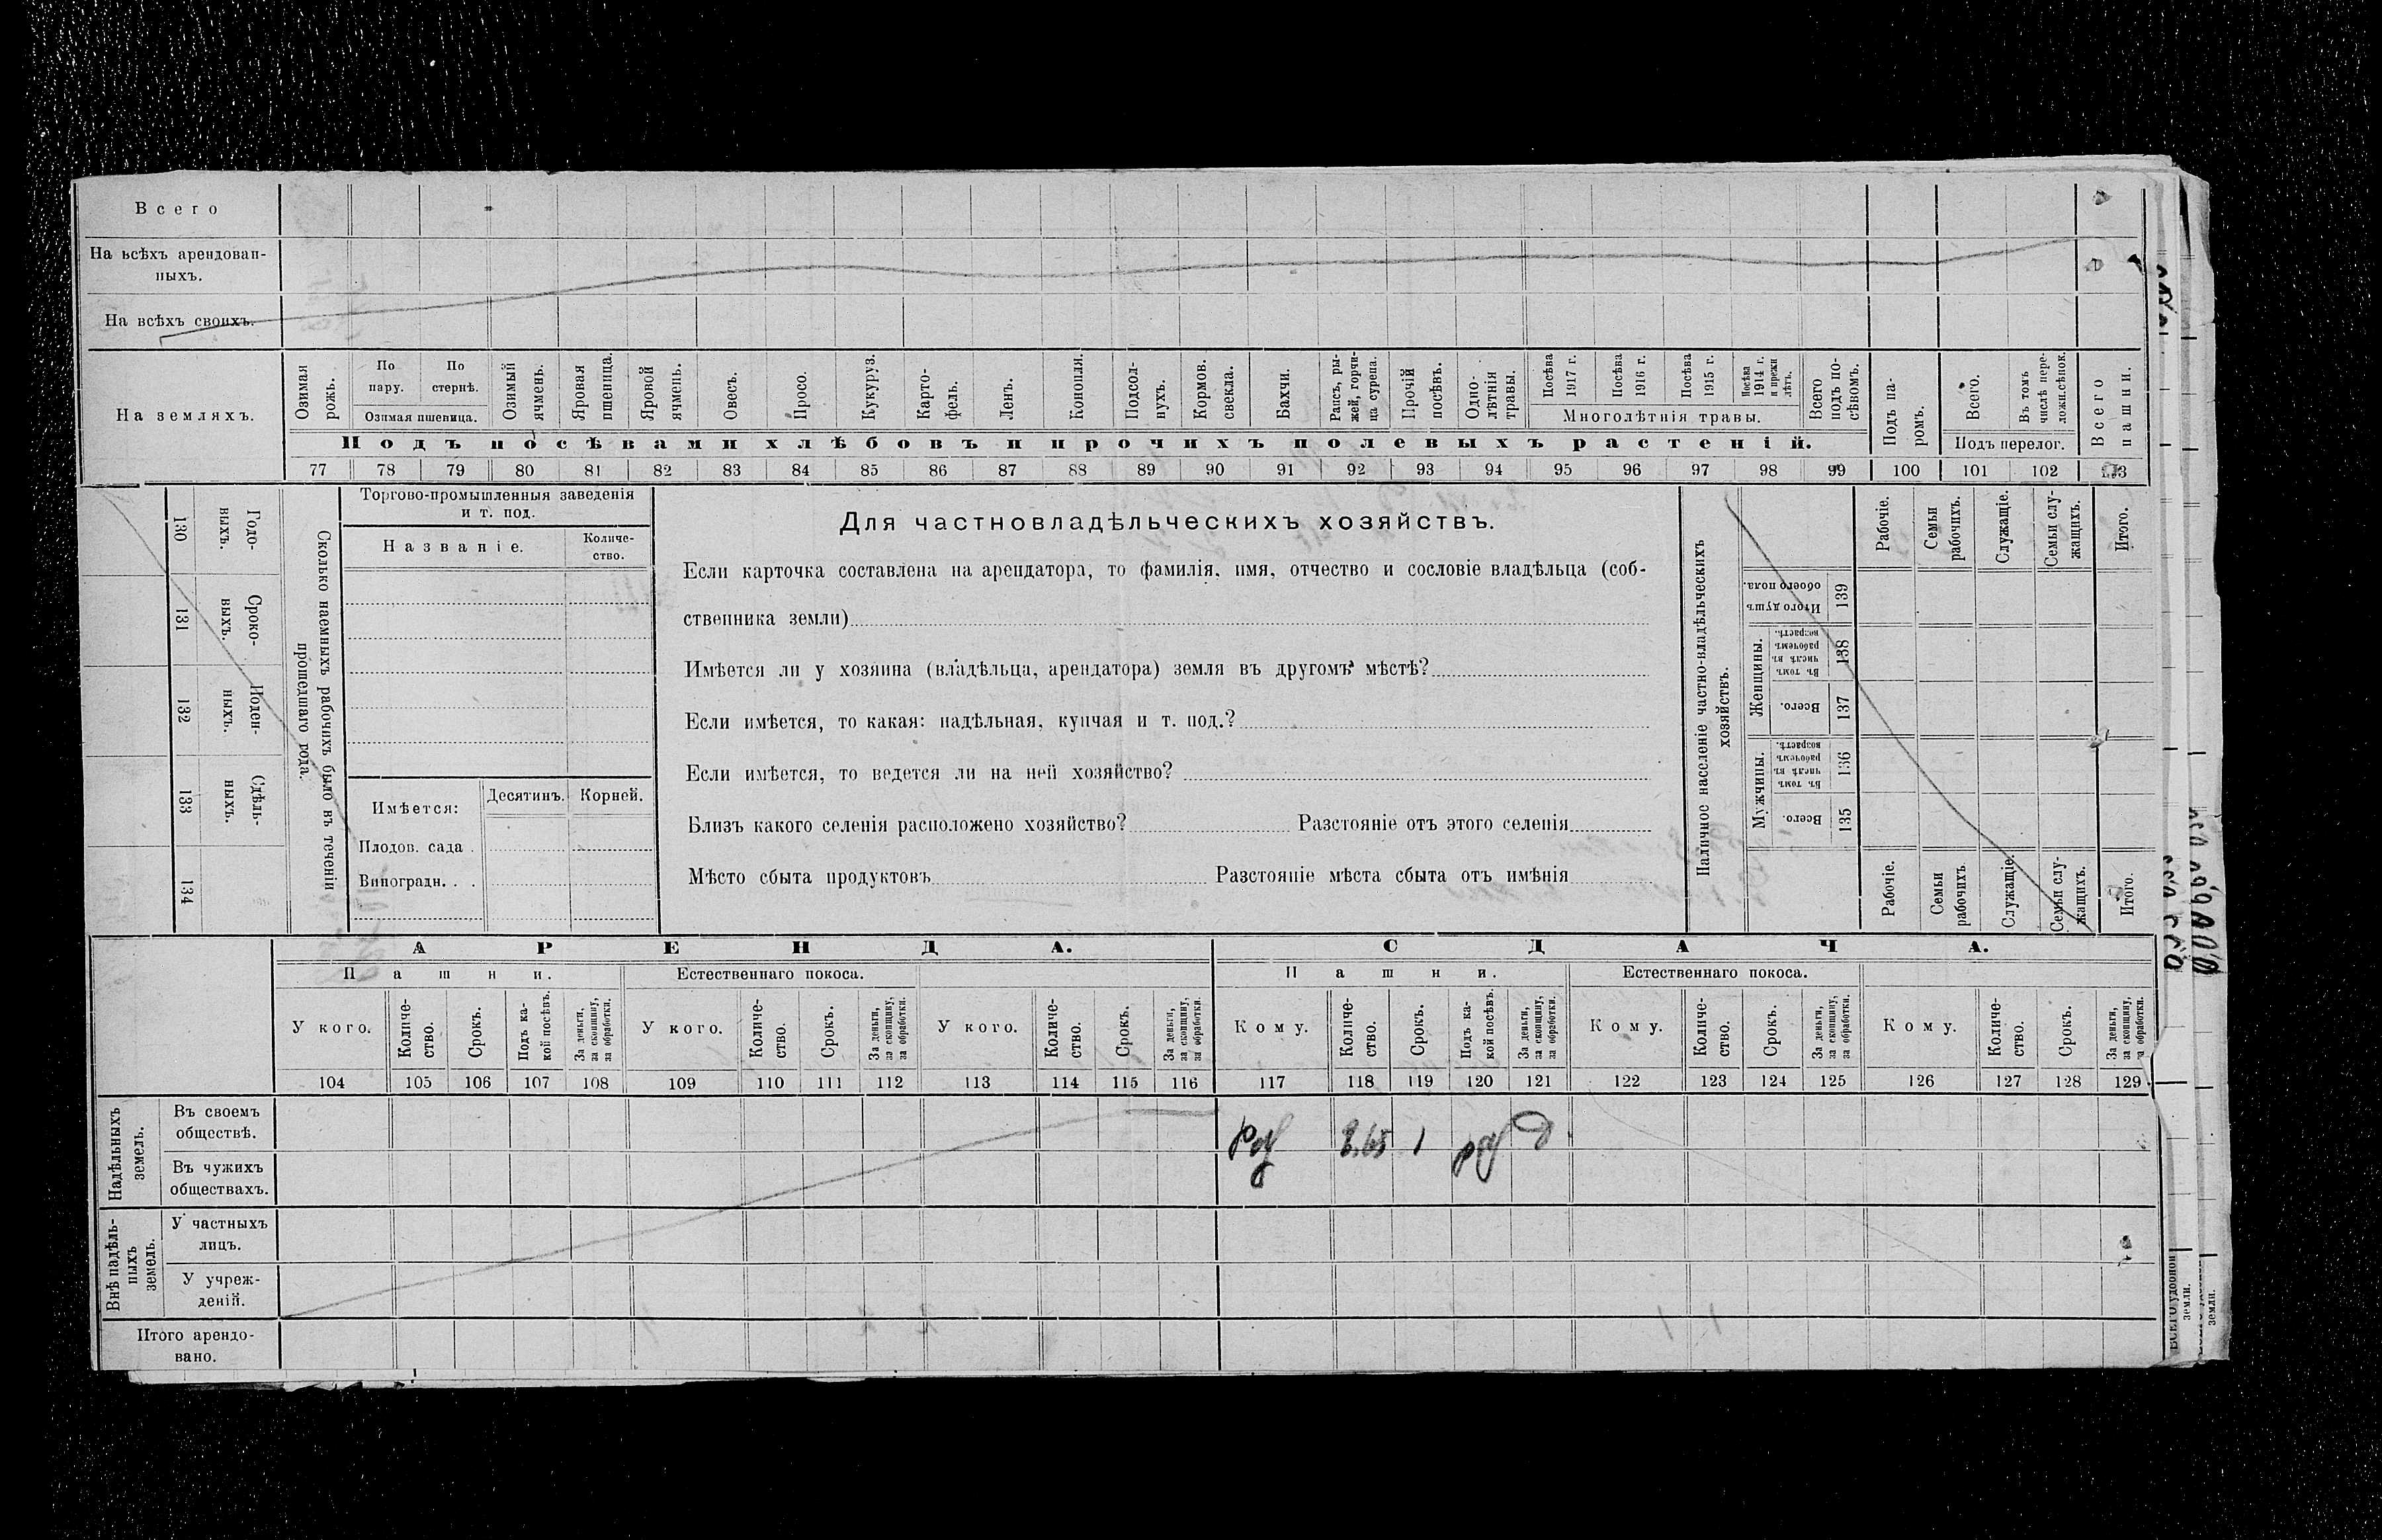 Всего
На всѣхъ арендован-
ныхъ.
На всѣхъ своихъ.
На земляхъ.
Озимая
рожь.
По
пару.
По
стернѣ.
Озимая пшеница.
Озимый
ячмень.
Яровая
пшеница.
Яровой
ячмень.
Овесъ.
Просо.
Кукуруз.
Карто-
фель.
Ленъ.
Конопля.
Подсол-
нухъ.
Кормов.
свекла.
Бахчи.
Рапсъ, ры-
жей, горчи-
ца сурепа.
Прочій
посѣвъ.
Одно-
лѣтнія
травы.
Посѣва
1917 г.
Посѣва
1916 г.
Посѣва
1915 г.
Посѣва
1914 г.
и прежн
лѣтъ.
Многолѣтнія травы.
Всего
подъ по-
сѣвомъ.
Подъ па-
ромъ.
Всего.
Въ томъ
числѣ пере-
ложн.сѣнок.
Подъ перелог.
Всего
пашни.
Подъ посѣвами хлѣбовъ и прочихъ полевыхъ растеній.
77 78 79 80 81 82 83 84 85 86 87 88 89 90 91 92 93 94 95 96 97 98 99 100 101 102 103
130
Годо-
выхъ.
131
Сроко-
выхъ.
132
Поден-
ныхъ.
133
Сдѣль-
ныхъ.
134
Сколько наемныхъ рабочихъ было въ теченіи
прошедшаго года.
Торгово-промышленныя заведенія
и т. под.
Названіе.
Количе-
ство.
Имѣется:
Десятинъ.
Корней.
Плодов. сада .
Виноградн. . .
Для частновладѣльческихъ хозяйствъ.
Если карточка составлена на арендатора, то фамилія, имя, отчество и сословіе владѣльца (соб-
ственника земли)
Имѣется ли у хозяина (владѣльца, арендатора) земля въ другомъ мѣстѣ?
Если имѣется, то какая: надѣльная, купчая и т. под.?
Если имѣется, то ведется ли на ней хозяйство?
Близъ какого селенія расположено хозяйство? Разстояніе отъ этого селенія
Мѣсто сбыта продуктовъ Разстояніе мѣста сбыта отъ имѣнія
Наличное населеніе частно-владѣльческихъ
хозяйствъ.
Рабочіе.
Семьи
рабочихъ.
Служащіе.
Семьи слу-
жащихъ.
Итого.
Итого душъ
обоего пола.
139
Женщины.
Въ томъ
числѣ въ
рабочемъ
возрастѣ.
138
Всего.
137
Мужчины.
Въ томъ
числѣ въ
рабочемъ
возрастѣ.
136
Всего.
135
Рабочіе.
Семьи
рабочихъ
Служащіе.
Семьи слу-
жащихъ.
Итого.
АРЕНДА.
СДАЧА.
Пашни.
Естественнаго покоса.
Пашни.
Естественнаго покоса.
У кого.
Количе-
ство.
Срокъ.
Подъ ка-
кой посѣвъ.
За деньги,
за скопщину,
за обработки.
У кого.
Количе-
ство.
Срокъ.
За деньги,
за скопщину,
за обработки.
У кого.
Количе-
ство.
Срокъ.
За деньги,
за скопщину,
за обработки.
Кому.
Количе-
ство.
Срокъ.
Подъ ка-
кой посѣвъ.
За деньги,
за скопщину,
за обработки.
Кому.
Количе-
ство.
Срокъ.
За деньги,
за скопщину,
за обработки.
Кому.
Количе-
ство.
Срокъ.
За деньги,
за скопщину,
за обработки.
104 105 106 107 108 109 110 111 112 113 114 115 116 117 118 119 120 121 122 123 124 125 126 127 128 129
Надѣльныхъ
земель.
Въ своемъ
обществѣ.
1
Въ чужихъ
обществахъ.
Внѣ надѣль-
ныхъ
земель.
У частныхъ
лицъ.
У учреж-
деній.
Итого арендо-
вано.
земли.
земли.